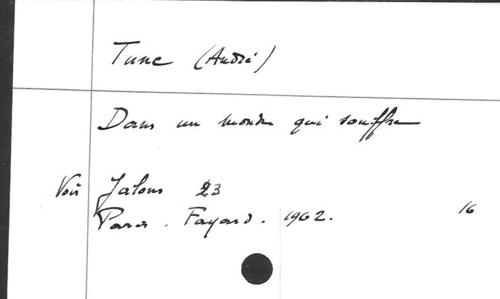 Tunc (André)
Dans un monde qui souffre
Voir Jalons 23
Paris. Fayard. 1962. 16